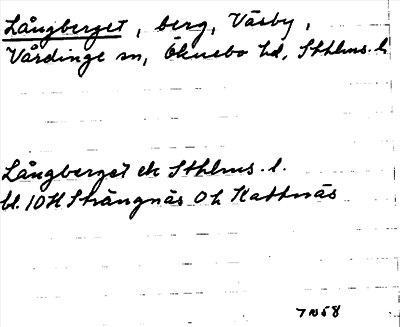 Långberget, berg, Väsby,
Vårdinge sn, Öknebo hd, Sthlms. l.
Långberget ek Sthlms. l.
bl. 10H Strängnäs 0h Kattnäs
7 NO 58